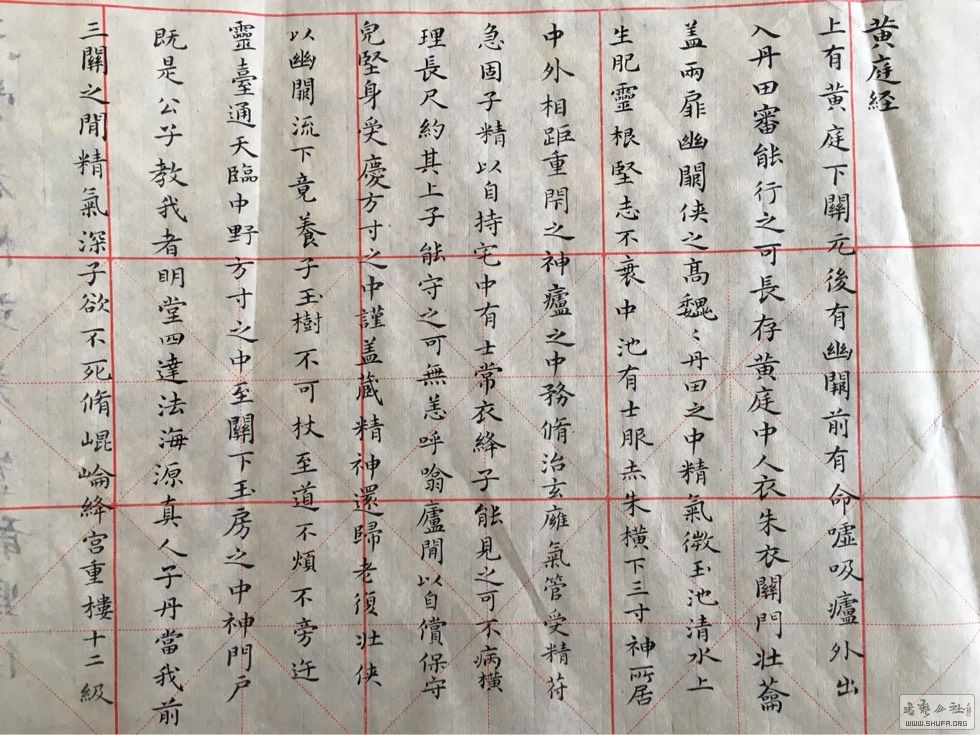 黄庭経
上有黄庭下關元後有幽闕前有命噓吸廬外出
入丹田審能行之可長存黄庭中人衣朱衣關門壮蘥
盖兩扉幽闕侠之髙巍〻丹田之中精氣微玉池清水上
生肥靈根堅志不衰中池有士服赤朱橫下三寸神所居
中外相距重閇之神廬之中務脩治玄廱氣管受精苻
急固子精以自持宅中有士常衣絳子能見之可不病橫
理長尺約其上子能守之可無恙呼噏廬間以自償保守
皃堅身受慶方寸之中謹盖蔵精神還歸老復壮侠
以幽闕流下竟養子玉樹不可杖至道不煩不旁迕
靈臺通天臨中野方寸之中至關下玉房之中神門戸
既是公子教我者明堂四達法海源真人子丹當我前
三關之間精氣深子欲不死脩崐崘絳宫重樓十二級
書藝公社
WWW.SHUFA.ORG